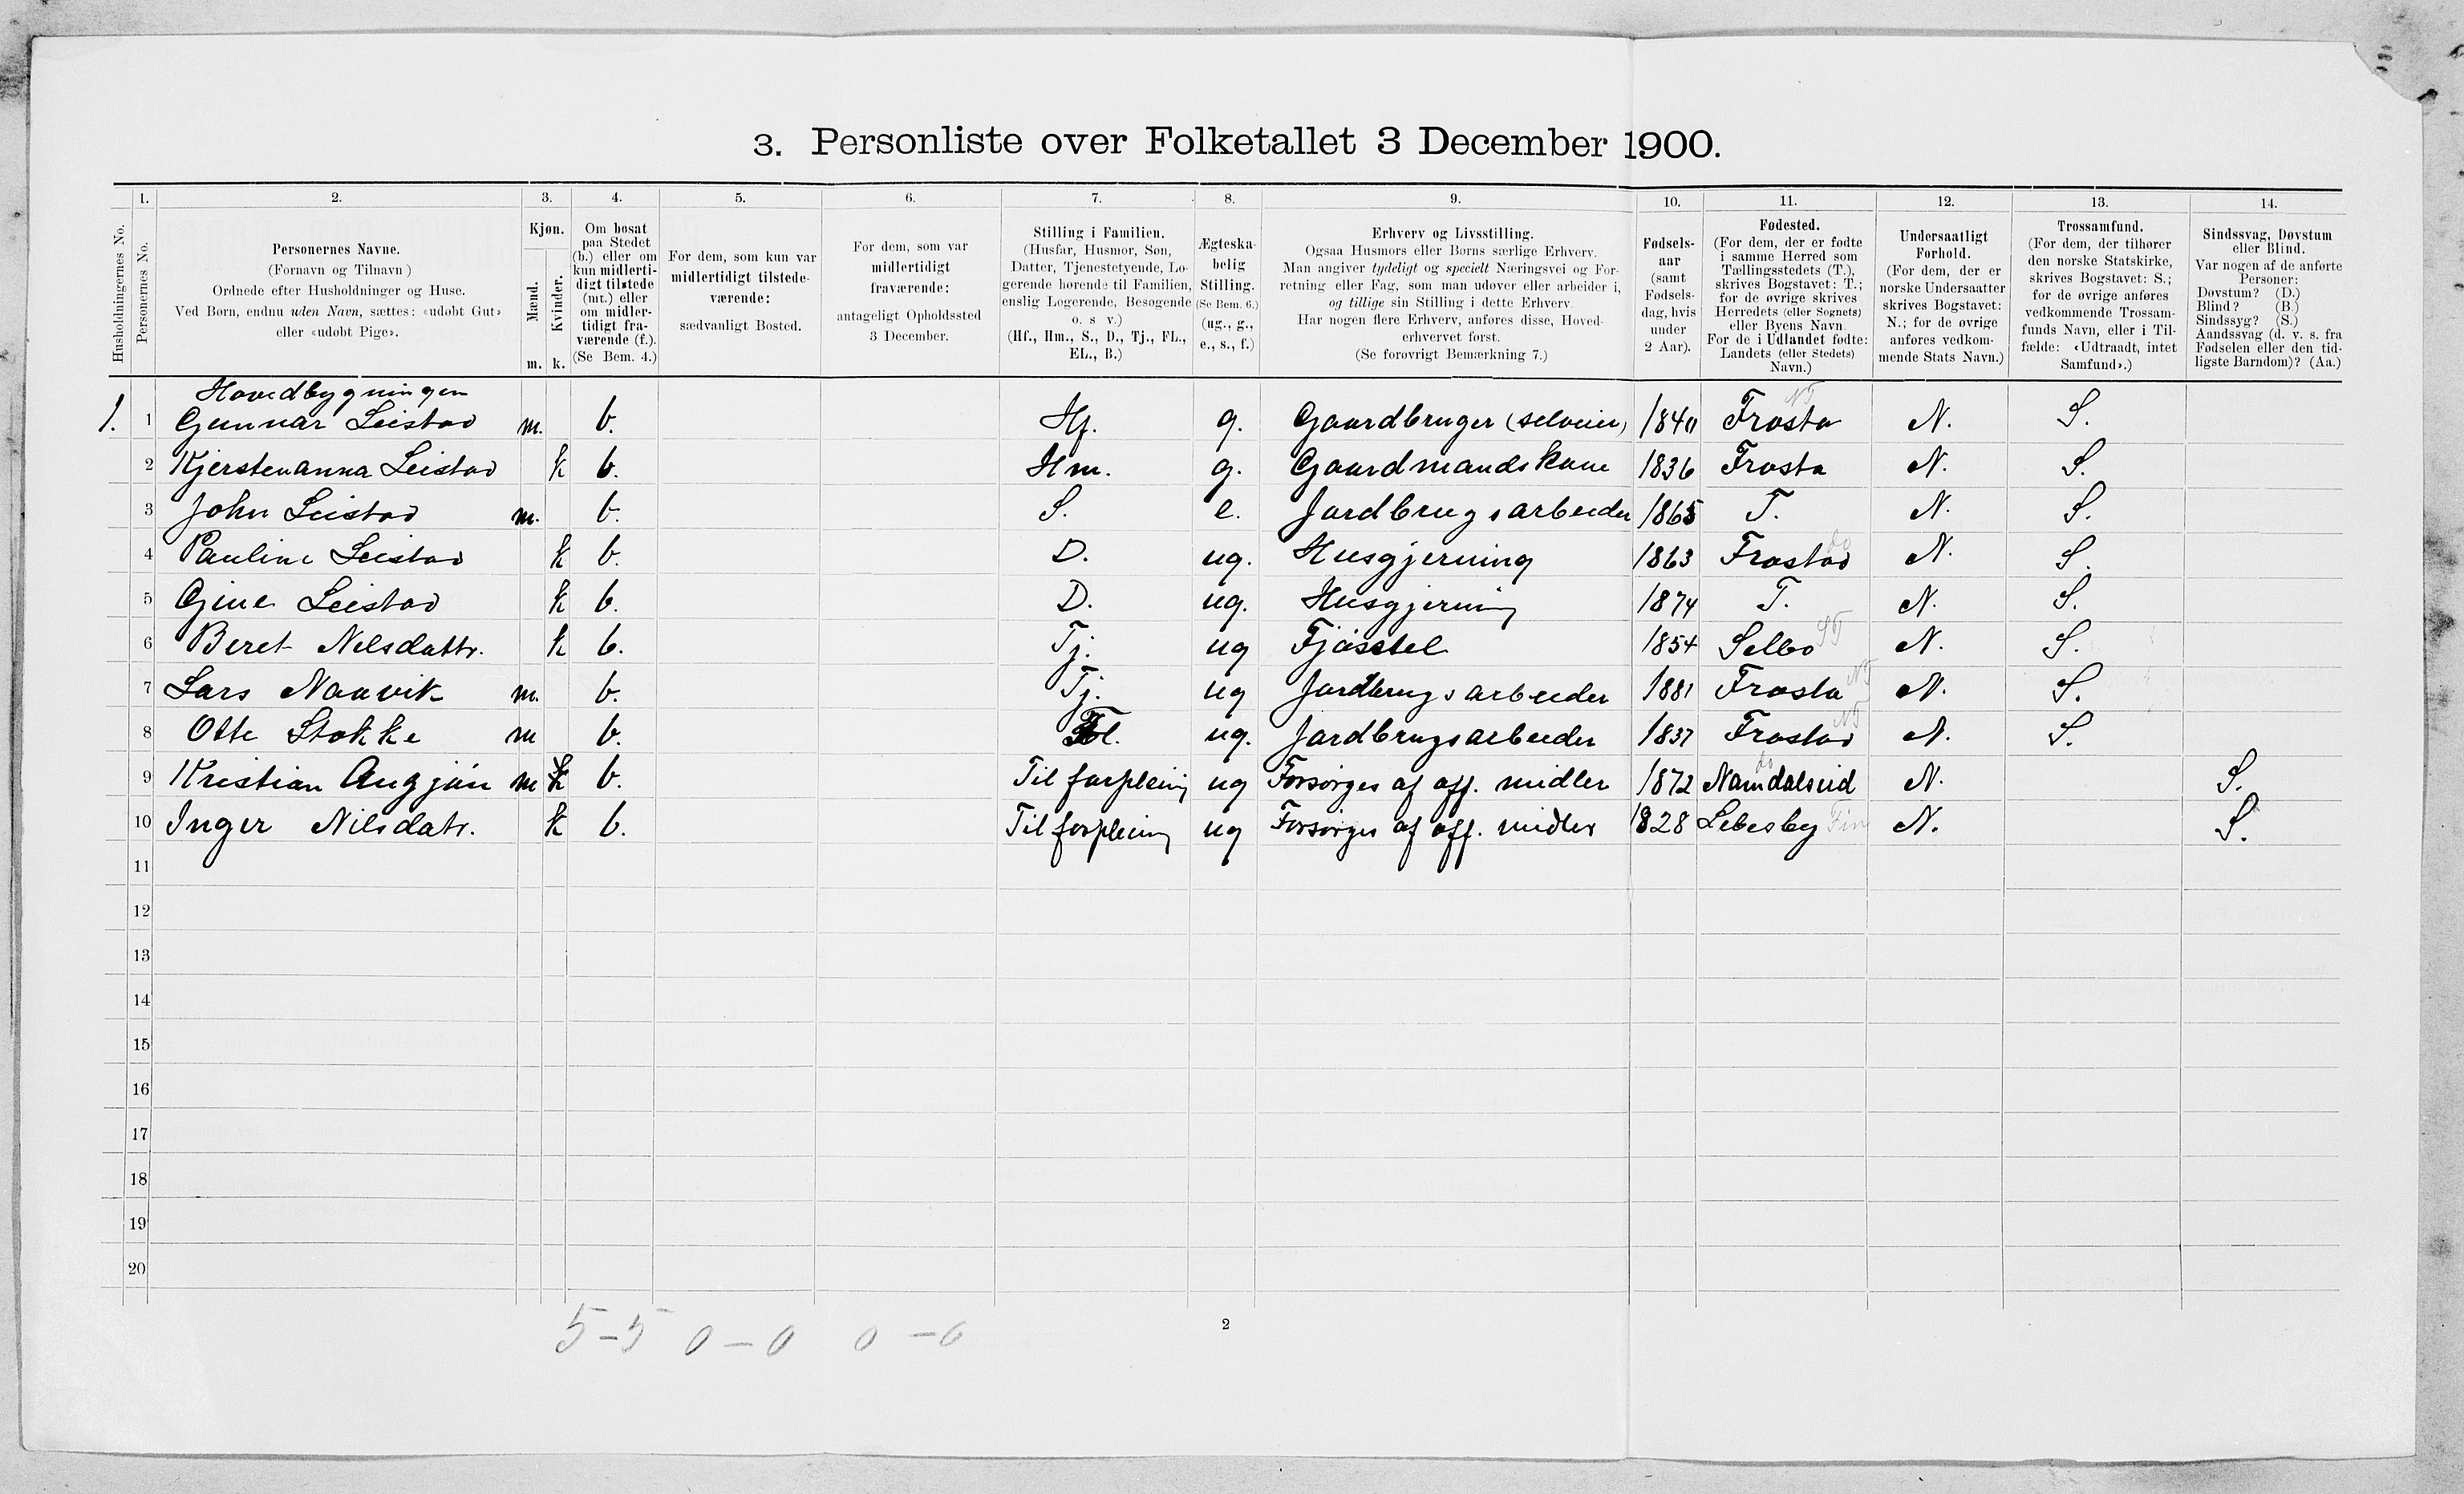 3. Personliste over Folketallet 3 December 1900.
1. 2. 3. 4. 5. 6. 7. 8. 9. 10. 11. 12. 13. 14.
Husholdningernes No.
Personernes No.
Personernes Navne.
(Fornavn og Tilnavn)
Ordnede efter Husholdninger og Huse.
Ved Børn, endnu uden Navn, sættes: «udøbt Gut»
eller «udøbt Pige».
Kjøn.
Mænd.
Kvinder.
m. k.
Om bosat
paa Stedet
(b.) eller om
kun midlerti-
digt tilstede
(mt.) eller
om midler-
tidigt fra-
værende (f.).
(Se Bem. 4.)
For dem, som kun var
midlertidigt tilstede-
værende:
sædvanligt Bosted.
For dem, som var
midlertidigt
fraværende:
antageligt Opholdssted
3 December.
Stilling i Familien.
(Husfar, Husmor, Søn,
Datter, Tjenestetyende, Lo-
gerende hørende til Familien,
enslig Logerende, Besøgende
o. s v.)
(Hf., Hm., S., D., Tj., FL.,
EL., B.)
Ægteska-
belig
Stilling.
(Se Bem. 6.)
(ug., g.,
e., s., f.)
Erhverv og Livsstilling.
Ogsaa Husmors eller Børns særlige Erhverv.
Man angiver tydeligt og specielt Næringsvei og For-
retning eller Fag, som man udøver eller arbeider i,
og tillige sin Stilling i dette Erhverv.
Har nogen flere Erhverv, anføres disse, Hoved-
erhvervet først.
(Se forøvrigt Bemærkning 7.)
Fødsels-
aar
(samt
Fødsels-
dag, hvis
under
2 Aar).
Fødested.
(For dem, der er fødte
i samme Herred som
Tællingsstedets (T.),
skrives Bogstavet: T.;
for de øvrige skrives
Herredets (eller Sognets)
eller Byens Navn.
For de i Udlandet fødte:
Landets (eller Stedets)
Navn.)
Undersaatligt
Forhold.
(For dem, der er
norske Undersaatter
skrives Bogstavet:
N.; for de øvrige
anføres vedkom-
mende Stats Navn.)
Trossamfund.
(For dem, der tilhører
den norske Statskirke,
skrives Bogstavet: S.;
for de øvrige anføres
vedkommende Trossam-
funds Navn, eller i Til-
fælde: «Udtraadt, intet
Samfund».)
Sindssvag, Døvstum
eller Blind.
Var nogen af de anførte
Personer:
Døvstum? (D.)
Blind? (B.)
Sindssyg? (S.)
Aandssvag (d. v. s. fra
Fødselen eller den tid-
ligste Barndom)? (Aa.)
Hovedbygningen
1. 1 Gunnar Leistad m. b. Hf. g. Gaardbruger (selveier) 1840 Frosta NT N. S.
2 Kjerstenanna Leistad k b. Hm. g. Gaardmandskone 1836 Frosta N. S.
3 John Leistad m. b. S. e. Jordbrugsarbeider 1865 T. N. S.
4 Pauline Leistad k b. D. ug. Husgjerning 1863 Frostad do N. S.
5 Gjine Leistad k b. D. ug. Husgjerning 1874 T. N. S.
6 Beret Nelsdattr. k b. Tj. ug Fjøsstel 1854 Selbo ST N. S.
7 Lars Naavik m. b. Tj. ug Jordbrugsarbeider 1881 Frosta NT N. S.
8 Otte Stokke m b. Fl. ug. Jordbrugsarbeider 1837 Frostad NT N. S.
9 Kristian Augján m k b. Til forpleinig ug Forsørges af off. midler 1872 Namdalseid do N. S.
10 Inger Nilsdatr. k b. Til forpleinig ug Forsørges af off. midler 1828 Lebesby Fin N. S.
11
12
13
14
15
16
17
18
19
20
5-5 0-0 0-0
2